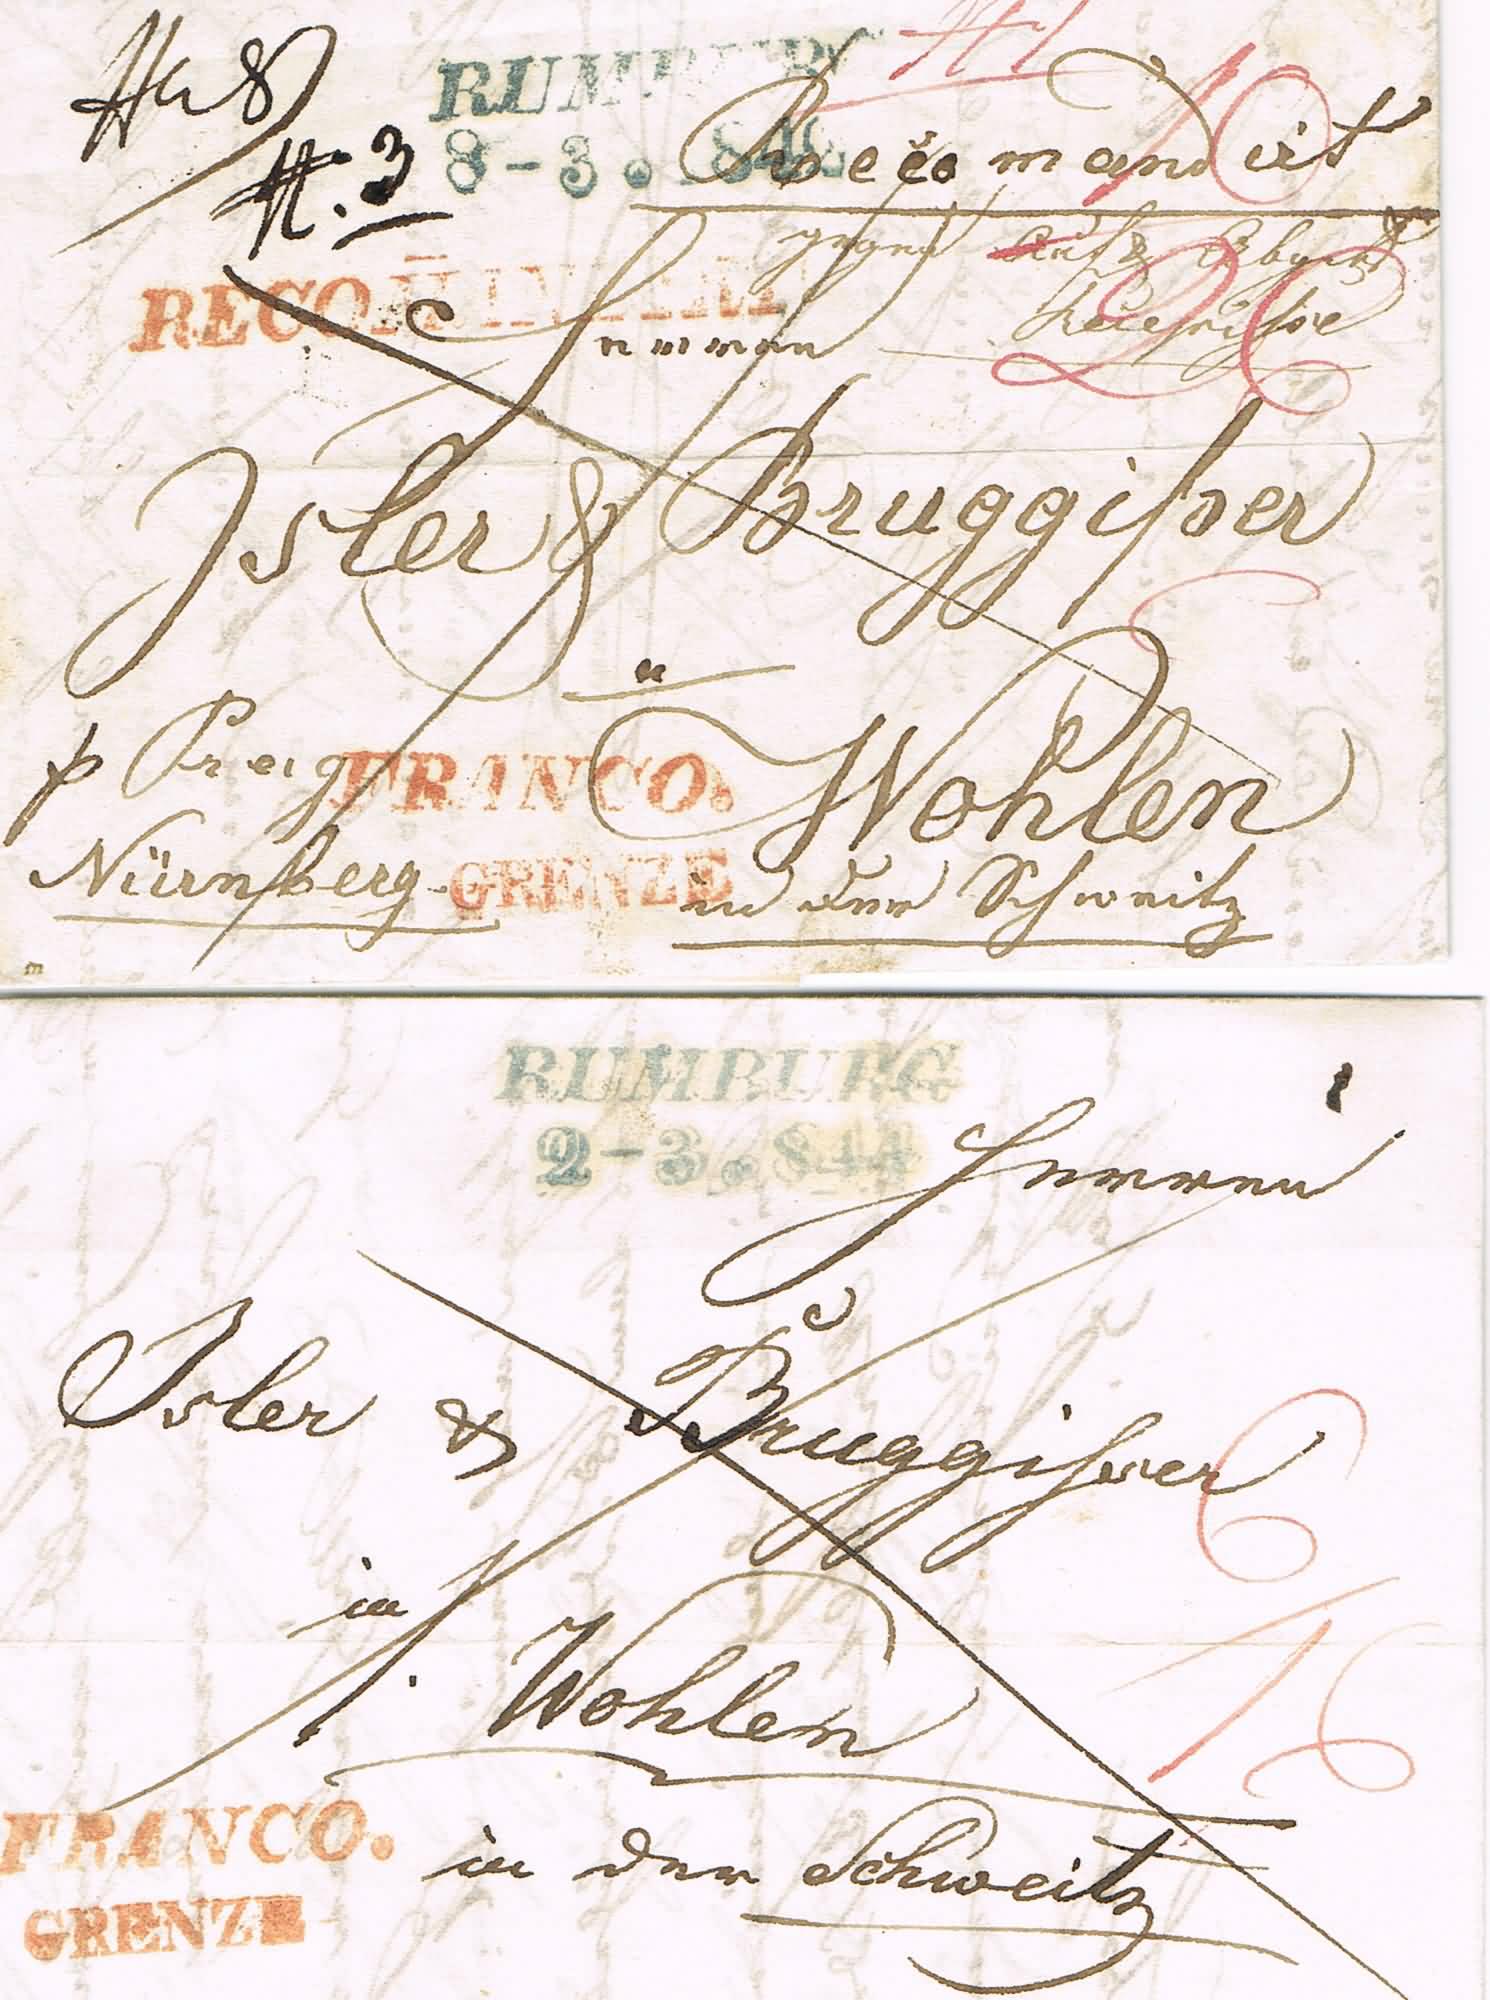 No 8
RUMBURG
8-3.84
N. 3
Recomandirt
gegen
RECOM̄ANDIRT
Herren
Isler & Bruggißer
Wohlen
p Prag
FRANCO.
Nürnberg
GRENZE
in der Schweitz
RUMBURG
2-3.844
Herren
Isler & Bruggisser
in
Wohlen
FRANCO.
in der Schweitz
GRENZE
6
16